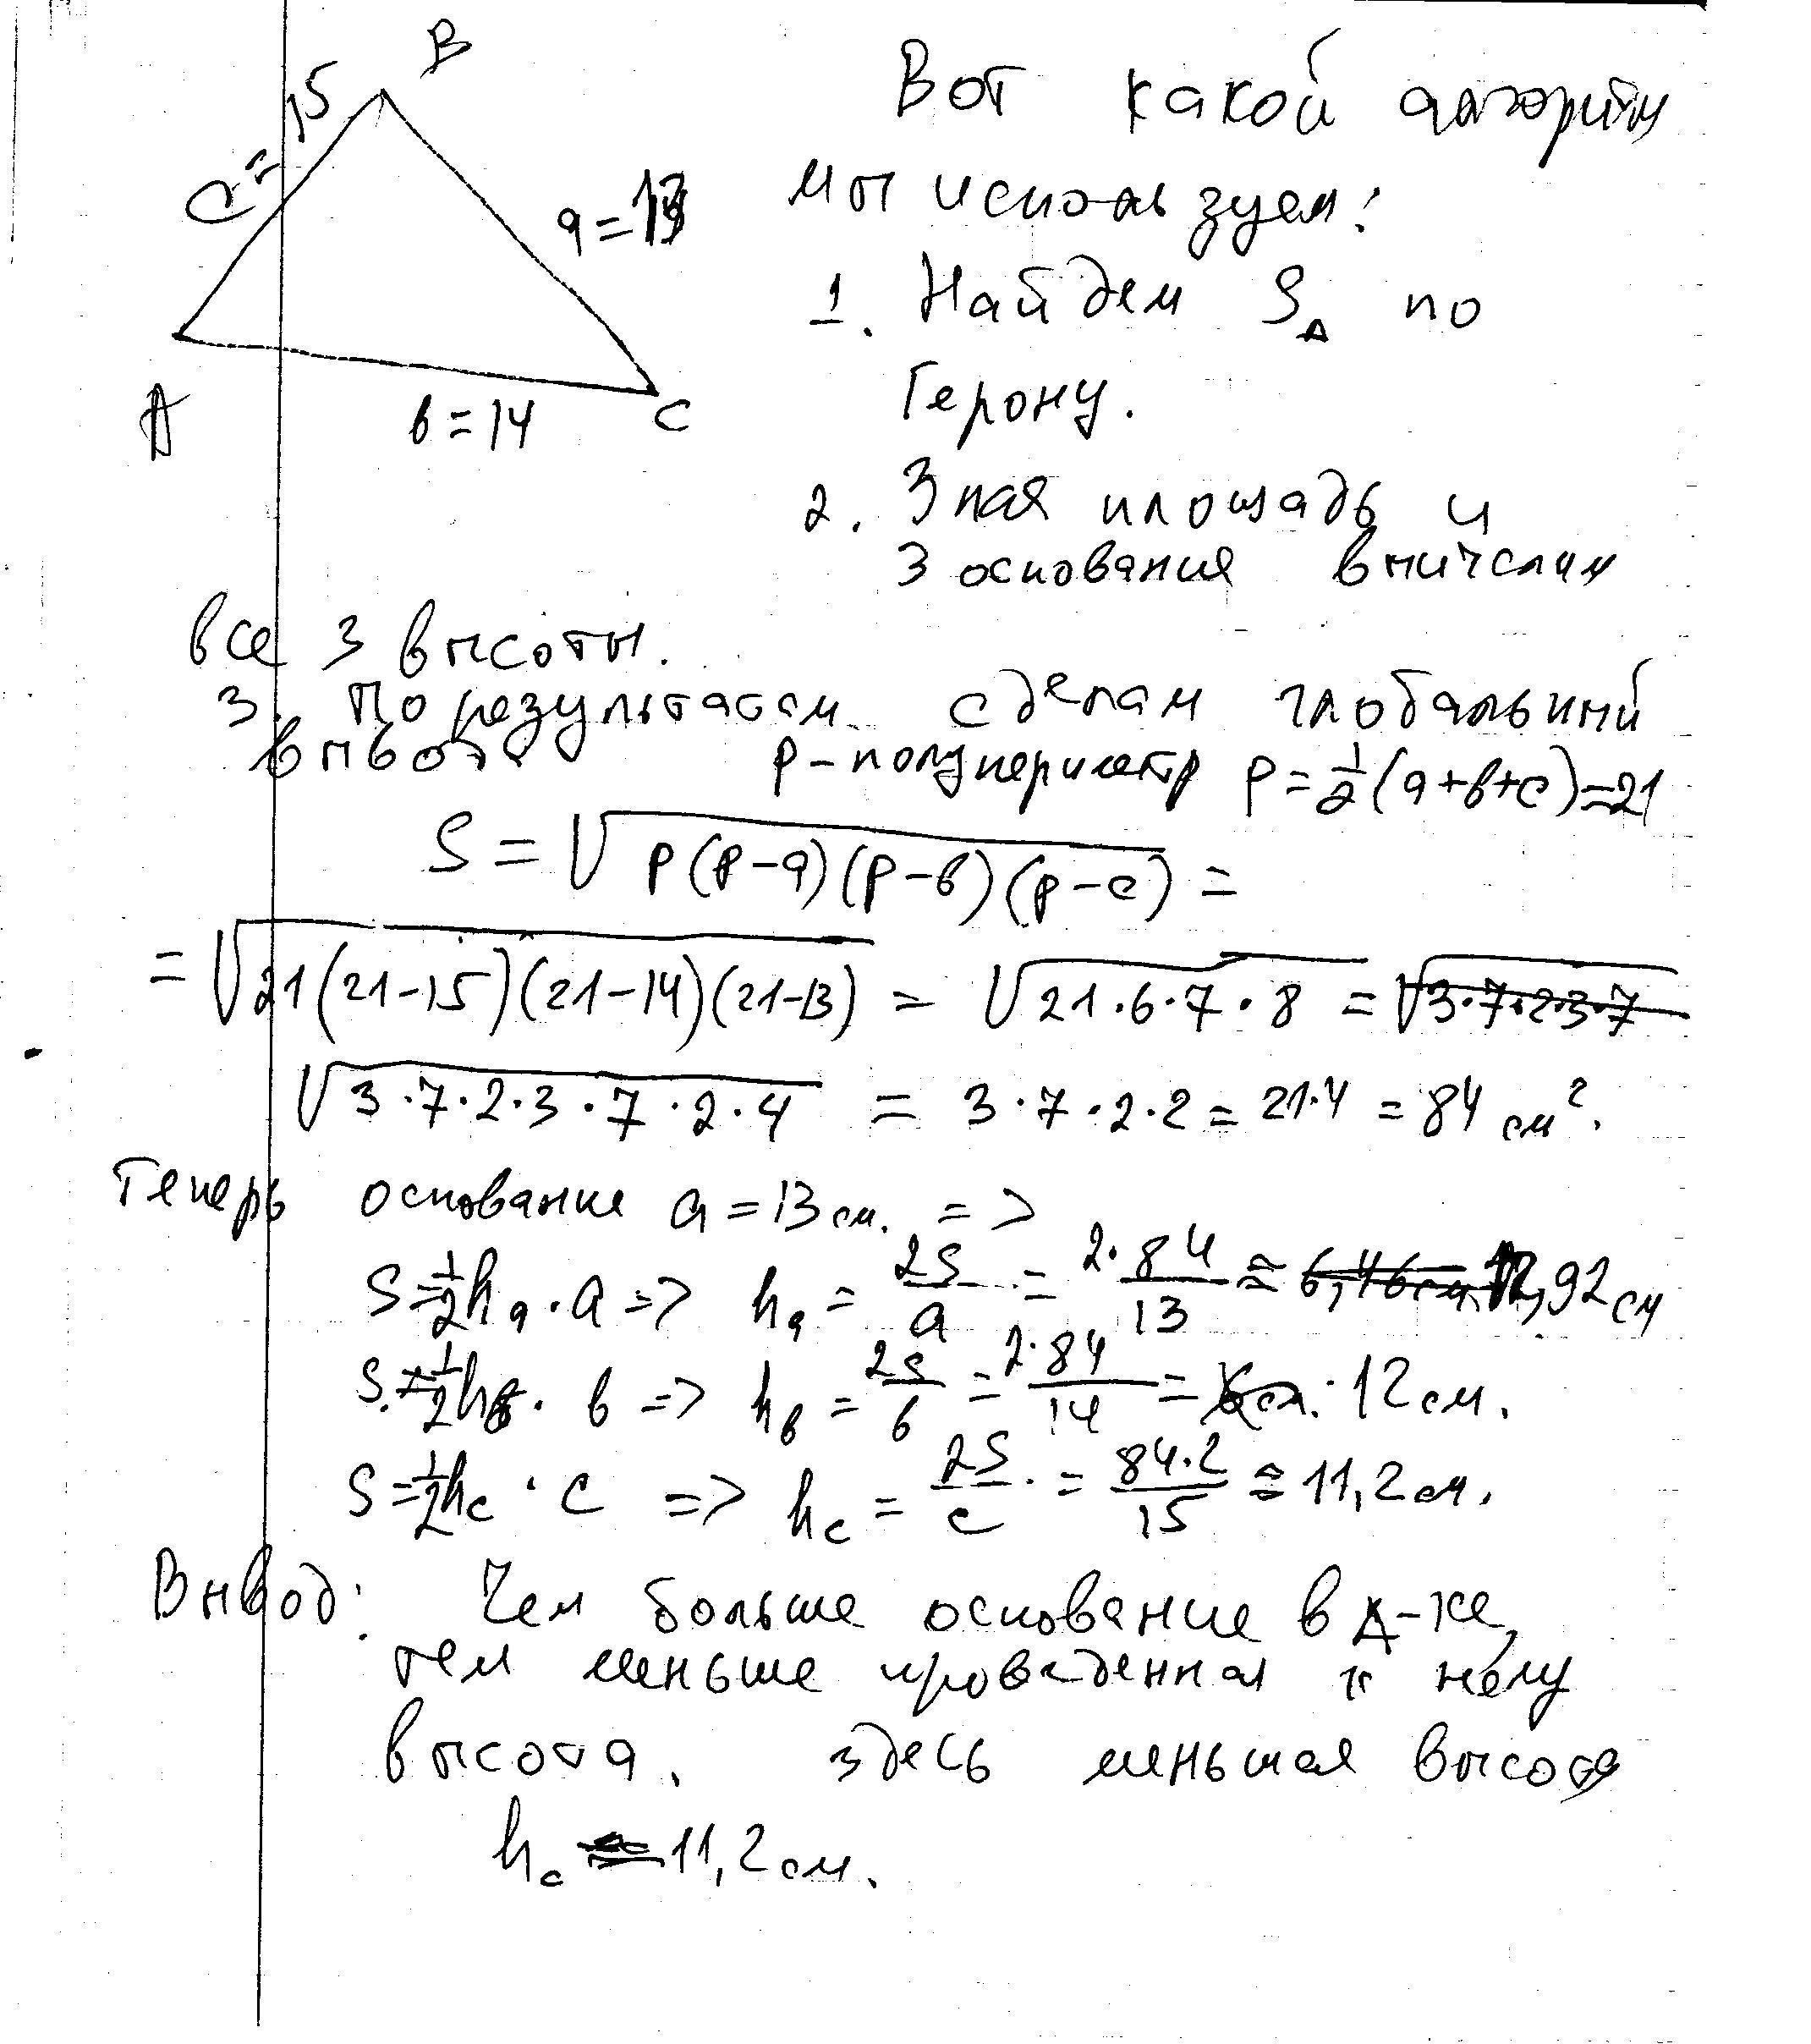 B
c=15
a=13
A
в=14
C
Вот какой алгоритм
мы используем:
1. Найдем S△ по
Герону.
2. Зная площадь и
3 основания вычислим
все 3 высоты.
3. По результатам сделам глобальный
вывод
p-полупериметр p=½(a+в+c)=21
S = √p(p-a)(p-в)(p-c) =
= √21(21-15)(21-14)(21-13) = √21·6·7·8 = √3·7·2·3·7
√3·7·2·3·7·2·4 = 3·7·2·2=21·4=84 см².
Теперь основание a=13 см. =>
S=½hₐ·a => hₐ = 2S/a = 2·84/13 ≈ 6,46см 12,92см
S=½hв·в => hв = 2S/в = 2·84/14 = 6см. 12см.
S=½hc·c => hc = 2S/c = 84·2/15 ≈ 11,2см.
Вывод: Чем больше основание в △-ке,
тем меньше проведенная к нему
высота. Здесь меньшая высота
hc = 11,2см.